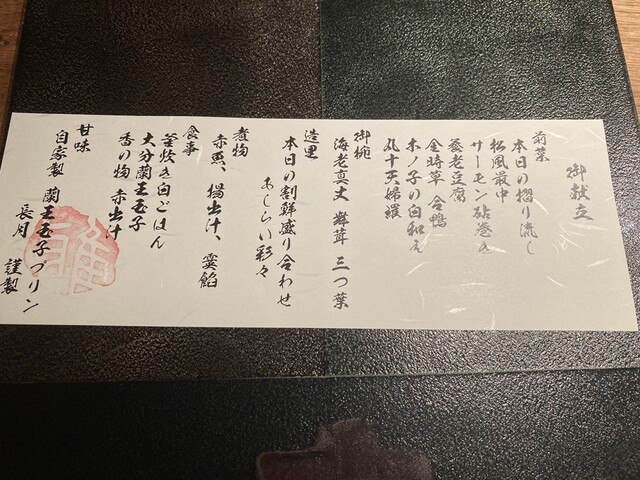 御献立
前菜
本日の摺り流し
松風最中
サーモン砧巻き
養老豆腐
金時草 合鴨
木ノ子の白和え
丸十天婦羅
御椀
海老真丈 舞茸 三つ葉
造里
本日の割鮮盛り合わせ
あしらい彩々
煮物
赤魚、揚出汁、霙餡
食事
釜炊き白ごはん
大分蘭王玉子
香の物 赤出汁
甘味
自家製 蘭王玉子プリン
長月 謹製